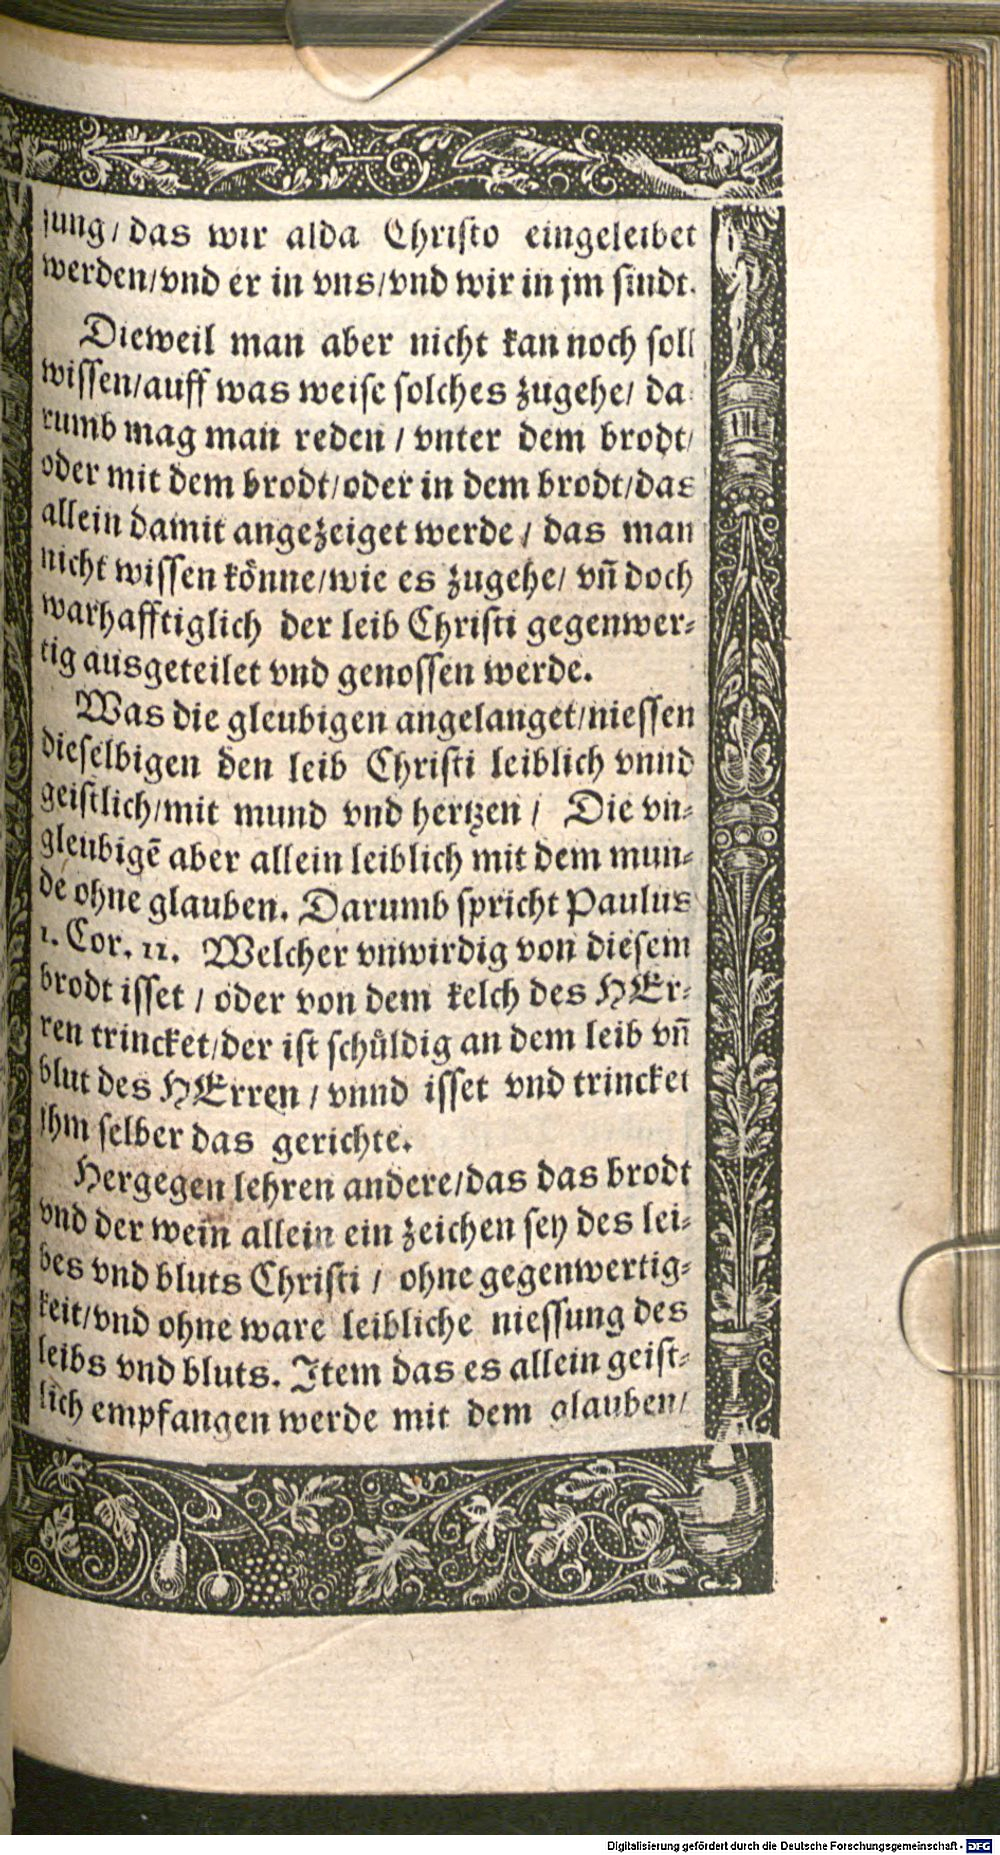 sung/ das wir alda Christo eingeleibet
werden/vnd er in vns/vnd wir in jm sindt.
Dieweil man aber nicht kan noch soll
wissen/auff was weise solches zugehe/ da
rumb mag man reden / vnter dem brodt/
oder mit dem brodt/oder in dem brodt/das
allein damit angezeiget werde / das man
nicht wissen könne/wie es zugehe/ vñ doch
warhafftiglich der leib Christi gegenwer-
tig ausgeteilet vnd genossen werde.
Was die gleubigen angelanget/niessen
dieselbigen den leib Christi leiblich vnnd
geistlich/mit mund vnd hertzen / Die vn-
gleubigē aber allein leiblich mit dem mun-
de ohne glauben. Darumb spricht Paulus
1. Cor. 11. Welcher vnwirdig von diesem
brodt isset / oder von dem kelch des HEr-
ren trincket/der ist schůldig an dem leib vñ
blut des HErren / vnnd isset vnd trincket
ihm selber das gerichte.
Hergegen lehren andere/das das brodt
vnd der wein allein ein zeichen sey des lei-
bes vnd bluts Christi / ohne gegenwertig-
keit/vnd ohne ware leibliche niessung des
leibs vnd bluts. Item das es allein geist-
lich empfangen werde mit dem glauben/
Digitalisierung gefördert durch die Deutsche Forschungsgemeinschaft - DFG